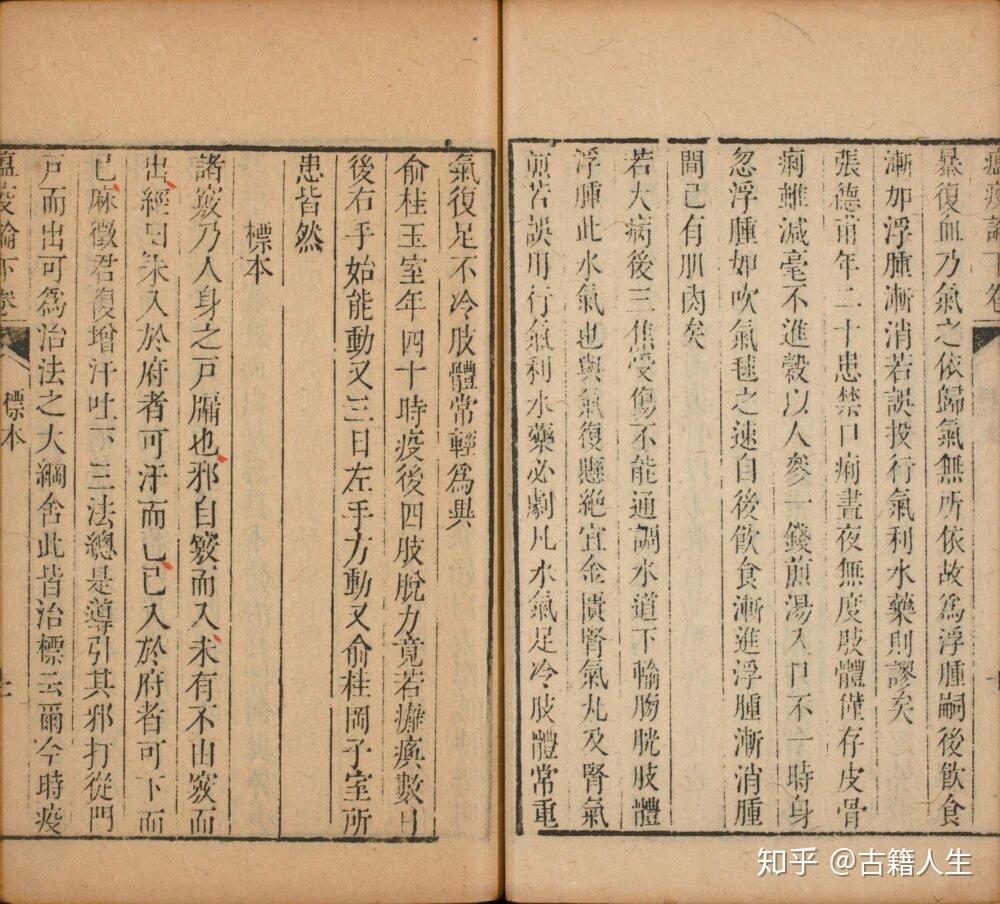 瘟疫論下卷
暴復血乃氣之依歸氣無所依故爲浮腫嗣後飲食
漸加浮腫漸消若誤投行氣利水藥則謬矣
張德甫年二十患禁口痢晝夜無度肢體僅存皮骨
痢雖減毫不進穀以人參一錢煎湯入口不一時身
忽浮腫如吹氣毬之速自後飲食漸進浮腫漸消腫
間已有肌肉矣
若大病後三焦受傷不能通調水道下輸膀胱肢體
浮腫此水氣也與氣復懸絕宜金匱腎氣丸及腎氣
煎若誤用行氣利水藥必劇凡水氣足冷肢體常重
氣復足不冷肢體常輕爲異
俞桂玉室年四十時疫後四肢脫力竟若癱瘓數日
後右手始能動又三日左手方動又俞桂岡子室所
患皆然
標本
諸竅乃人身之戸牖也邪自竅而入未有不由竅而
出經曰未入於府者可汗而已已入於府者可下而
已麻徵君復增汗吐下三法總是導引其邪打從門
戸而出可爲治法之大綱舍此皆治標云爾今時疫
瘟疫論下卷
標本
知乎 @古籍人生